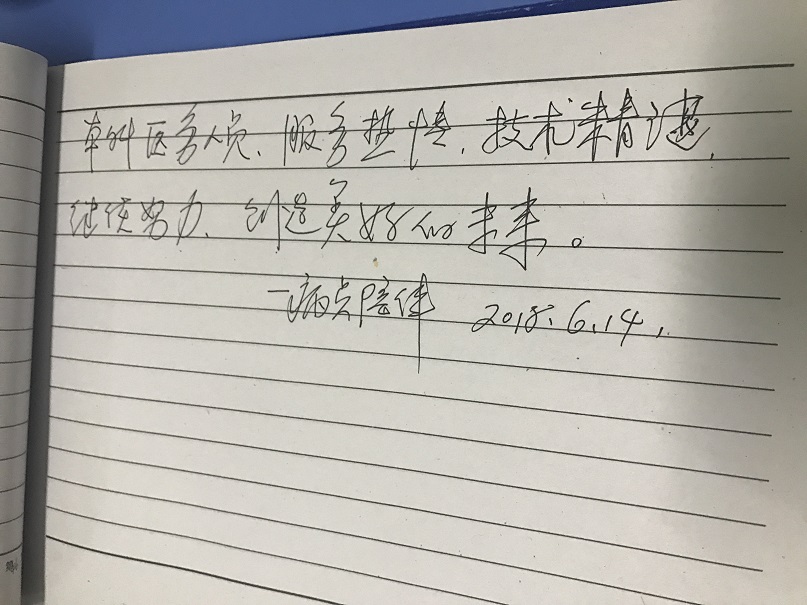 本科医务人员、服务热情,技术精湛,
继续努力、创造美好的未来。
一病员陪伴 2018.6.14.